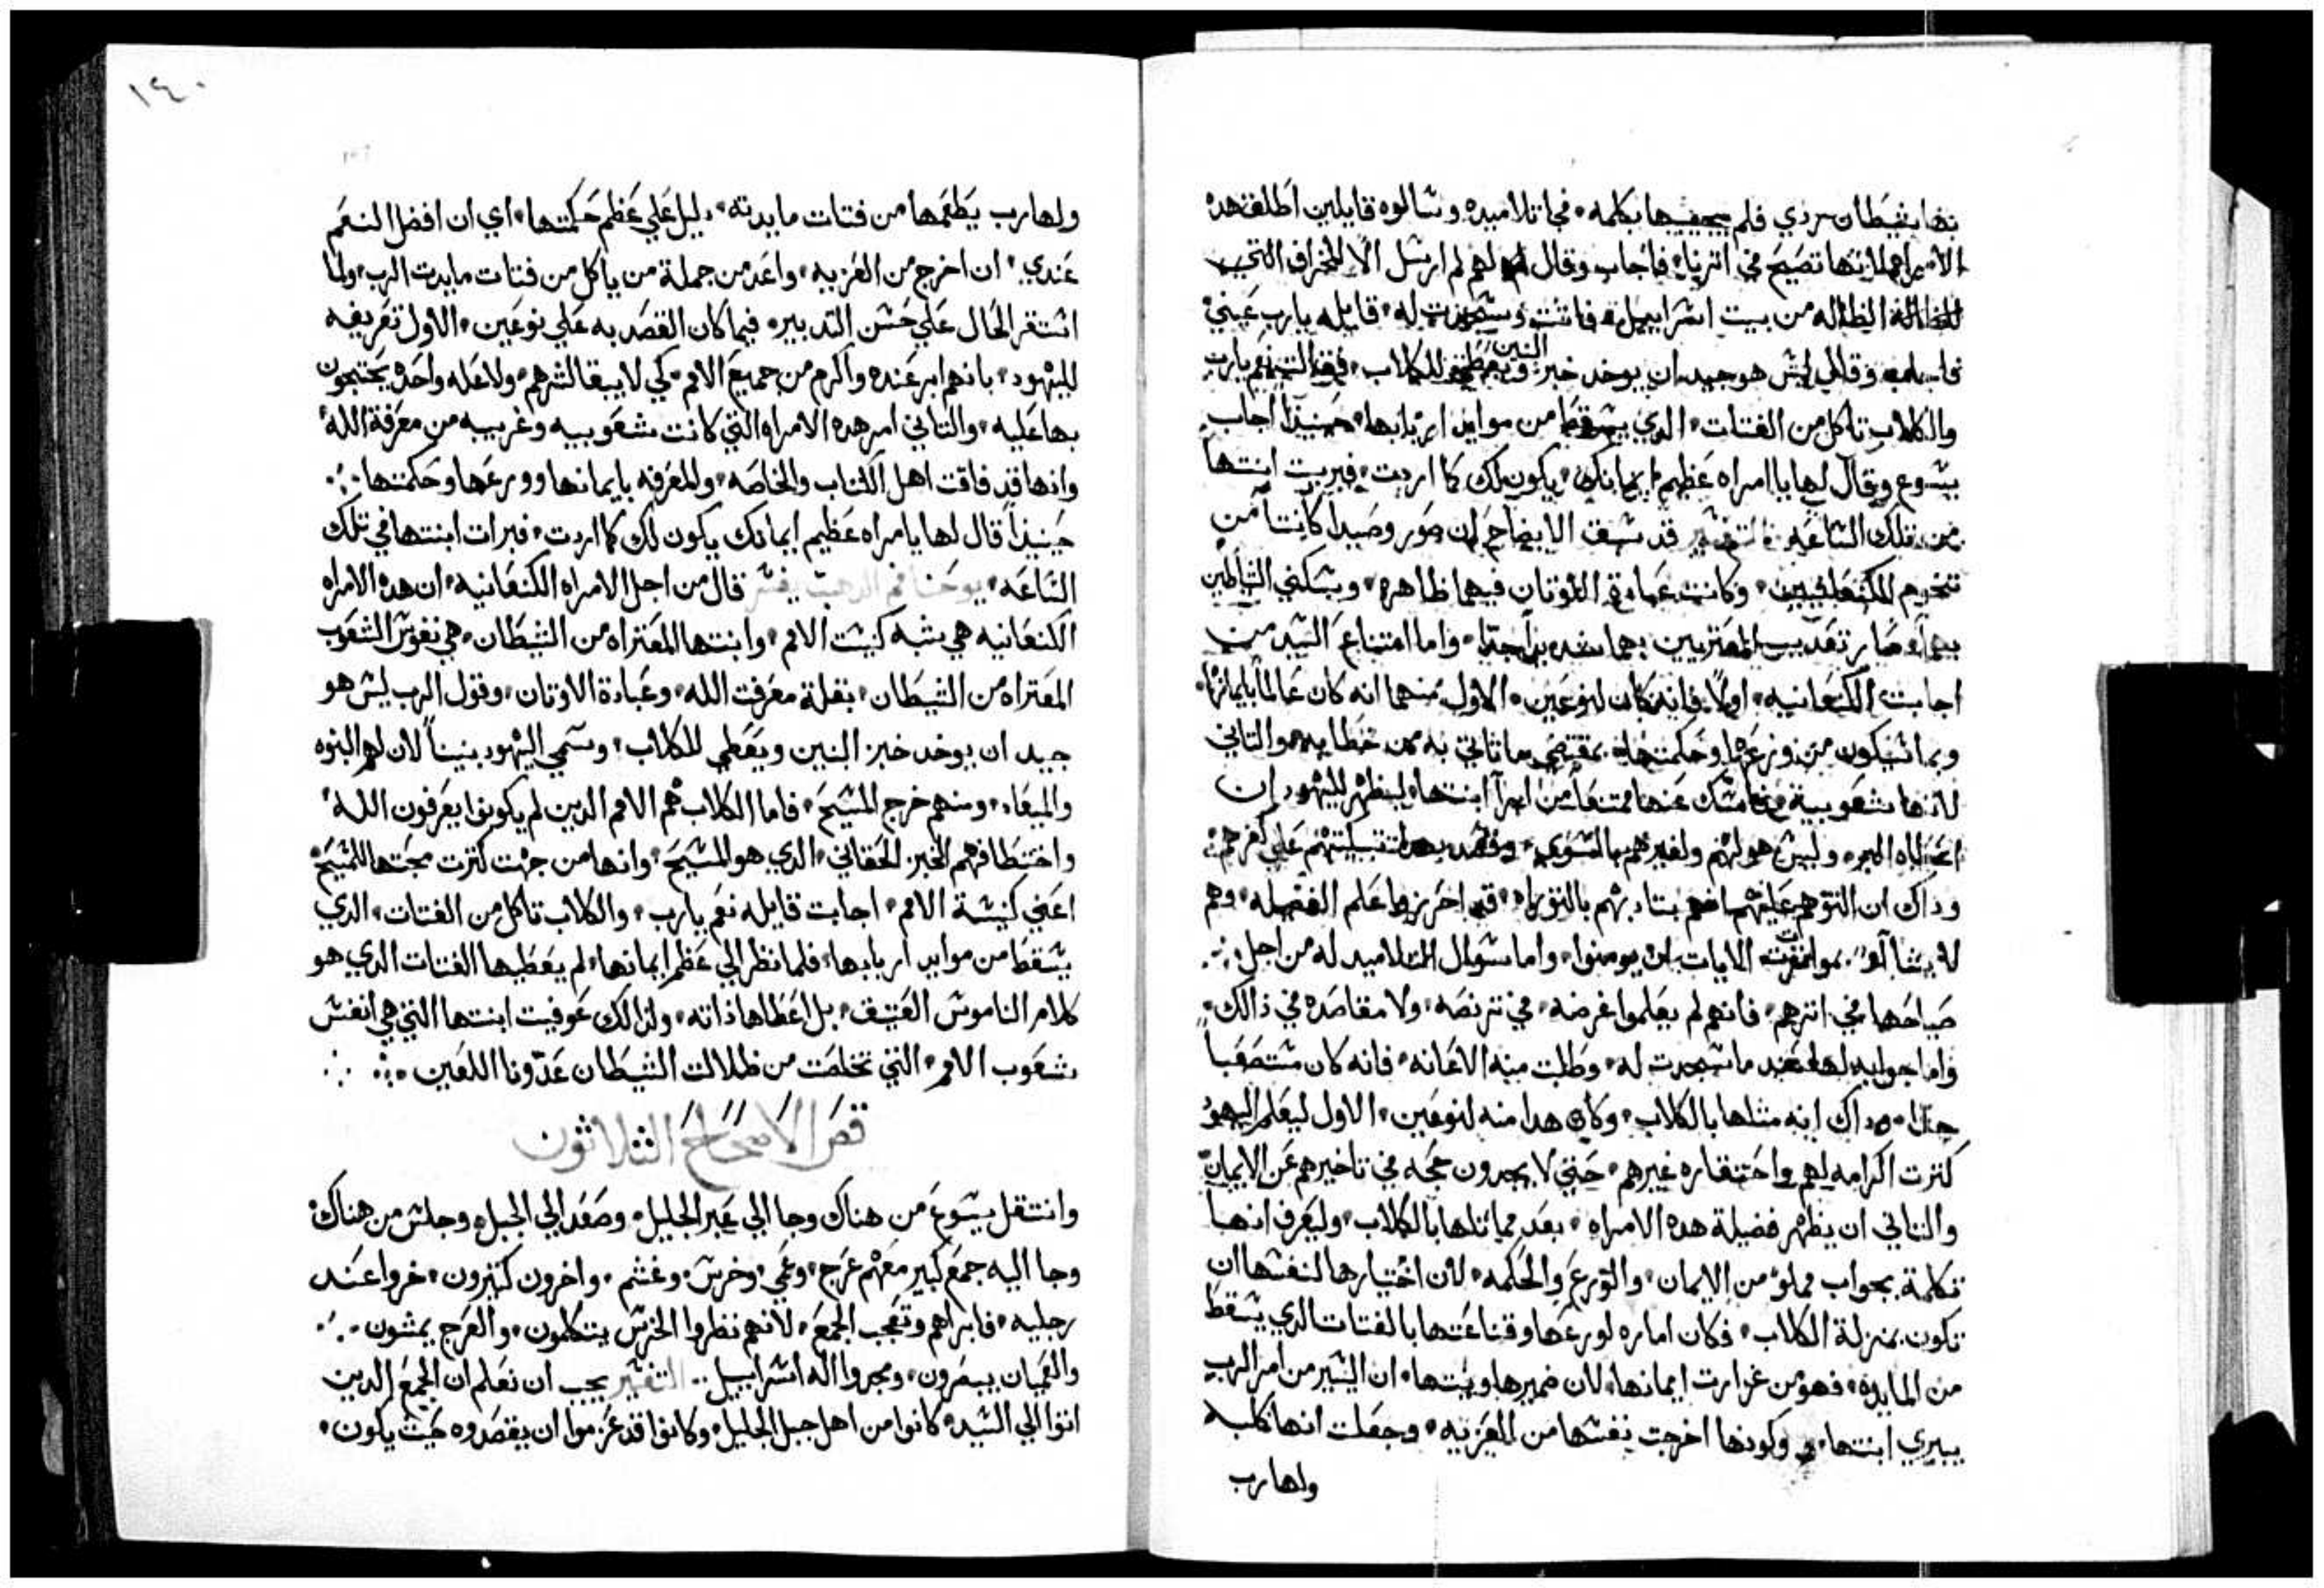 بها شيطان ردي فلم يجيبها بكلمه، فجا تلاميده وسالوه قايلين اطلق هده
الامراه لانها تصيح في اترنا، فاجاب وقال لهم لم ارسل الا للخراف التي
الضاله من بيت اسراييل، فاتت وسجدت له، قايله يارب عيني
فاجاب وقال ليس هو جيد ان يوخد خبز البنين ويعطي للكلاب، فقالت نعم يارب
والكلاب تاكل من الفتات، الدي يسقط من موايد اربابها، حينيذا اجاب
يسوع وقال لها يا امراه عظيم ايمانك، يكون لك كما اردت، فبريت ابنتها
من تلك الساعه، التفسير قد سبق الايضاح ان صور وصيدا كانتا من
تخوم الكنعانيين، وكانت عبادة الاوتان فيهما ظاهره، وسكني الشياطين
بهما وصار تعديب المعتريين بهما شديدا جدا، واما امتناع السيد من
اجابت الكنعانيه، اولا فانه كان لنوعين، الاول منهما انه كان عالما بايمانها،
وبما سيكون من ورعها وحكمتها، بمقتضي ماتاتي به من خطابه، والتاني
لانها شعوبية امسك عنها ممتنعا من ابرآ ابنتها، ليظهر لليهود ان
وليس هو لهم ولغيرهم بالسوي، وقصد بهدا تبكيتهم علي كفرهم:
وداك ان
الايات ان يومنوا، واما سوال التلاميد له من اجل
صياحها في اترهم، فانهم لم يعلموا غرضه، في تربصه، ولا مقاصده في ذالك،
واما جوابه لها بعد ماسجدت له، وطلبت منه الاعانه، فانه كان مستصعبا
جدا، وداك انه متلها بالكلاب، وكان هدا منه لنوعين، الاول ليعلم اليهود
كترت اكرامه لهم واحتقاره غيرهم، حتي لا يجدون حجه في تاخيرهم عن الايمان
والتاني ان يظهر فضيلة هده الامراه، بعد مماتلها بالكلاب، وليعرف انها
تكلمة بجواب مملو من الايمان، والتورع والحكمه، لان اختيارها لنفسها ان
تكون بمنزلة الكلاب، فكان اماره لورعها وقناعتها بالفتات الدي يسقط
من المايده، فهو من غزارت ايمانها، لان ضميرها ونيتها، ان اليسير من امر الرب
يبري ابنتها، وكونها اخرجت نفسها من العزبيه، وجعلت انها كلبه
ولها رب
١٤٠
ولها رب يطعمها من فتات مايدته، دليل علي عظم حكمتها، اي ان افضل النعم
عندي، ان اخرج من العزبيه، واعد من جملة من ياكل من فتات مايدت الرب، ولما
استقر الحال علي حسن التدبير، فيما كان القصد به علي نوعين، الاول تعريفه
لليهود، بانهم ابر عنده واكرم من جميع الامم، كي لا يبقا لشرهم، ولا عله واحده يحتجون
بها عليه، والتاني امر هده الامراه التي كانت شعوبيه وغريبه من معرفة الله
وانها قد فاقت اهل الكتاب والخاصه، والمعرفه بايمانها وورعها وحكمتها
حينيذا قال لها يامراه عظيم ايمانك يكون لك كما اردت، فبرات ابنتها في تلك
الساعه، يوحنا فم الدهب يفسر قال من اجل الامراه الكنعانيه، ان هده الامراه
الكنعانيه هي شبه كنيست الامم، وابنتها المعتراه من الشيطان، هي نفوس الشعوب
المعتراه من الشيطان، بقلة معرفت الله، وعبادة الاوتان، وقول الرب ليس هو
جيد ان يوخد خبز البنين ويعطي للكلاب، وسمي اليهود بنينا لان لهم البنوه
والميعاد، ومنهم خرج المسيح، فاما الكلاب هم الامم الدين لم يكونوا يعرفون الله
واختطافهم الخبز الحقاني، الدي هو المسيح، وانها من جهت كترت محبتها للمسيح
اعني كنيسة الامم، اجابت قايله نعم يارب، والكلاب تاكل من الفتات، الدي
يسقط من موايد اربابها، فلما نظر الي عظم ايمانها، لم يعطيها الفتات الدي هو
كلام الناموس العتيق، بل اعطاها ذاته، ولدالك عوفيت ابنتها التي هي انفس
شعوب الامم، التي تخلصت من ظلالات الشيطان عدونا اللعين
قص الاصحاح الثلاثون
وانتقل يسوع من هناك وجا الي عبر الجليل، وصعد الي الجبل، وجلس من هناك
وجا اليه جمع كبير معهم عرج، وعمي، وخرس، وعسم، واخرون كتيرون، خروا عند
رجليه، فابراهم وتعجب الجمع، لانهم نظروا الخرس يتكلمون، والعرج يمشون
والعميان يبصرون، ومجدوا اله اسراييل.. التفسير يجب ان نعلم ان الجمع الدين
اتوا الي السيد، كانوا من اهل جبل الجليل، وكانوا قد عزموا ان يقصدوه حيت يكون،